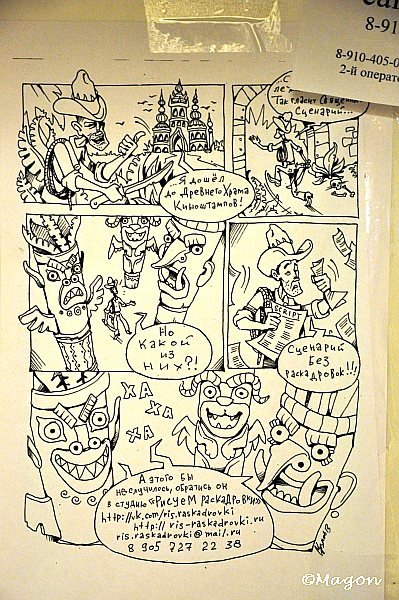 8-91
8-910-405-0
2-й операто
Так гласит Священ
Сценарий...
...Я дошёл
до Древнего Храма
Киноштампов!
Но
какой
из
них?!
SCRIPT
Сценарий
без
раскадровок!!
ХА
ХА
ХА
А этого бы
не случилось, обратись он
в студию «Рисуем Раскадровки»
http://vk.com/ris.raskadrovki
http://ris-raskadrovki.ru
ris.raskadrovki@mail.ru
8 905 727 22 38
©Magon